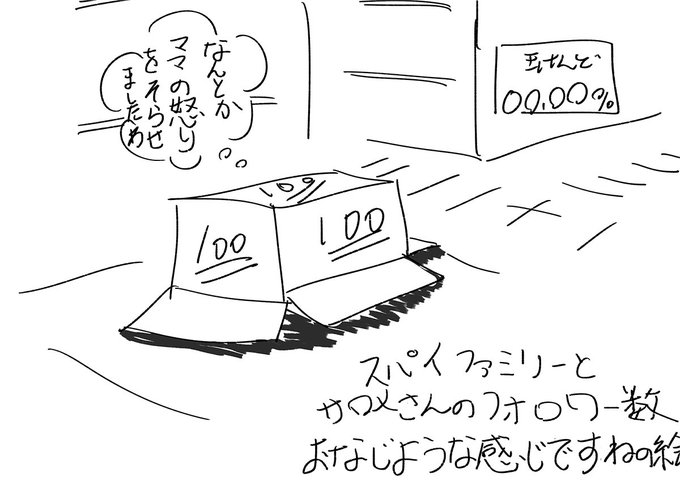 なんとか
ママの怒り
をそらせ
ましため
00.00%
100
100
100
スパイファミリーと
サメさんのフォロワー数
おなじような感じですねの絵